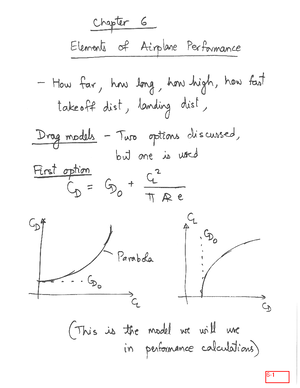 Chapter 6
Elements of Airplane Performance
- How far, how long, how high, how fast
takeoff dist, landing dist,
Drag models - Two options discussed,
but one is used
First option
C_D = C_D0 + C_L^2 / π AR e
C_D
C_L
C_D0
Parabola
C_D0
C_L
C_D
(This is the model we will use
in performance calculations)
6-1